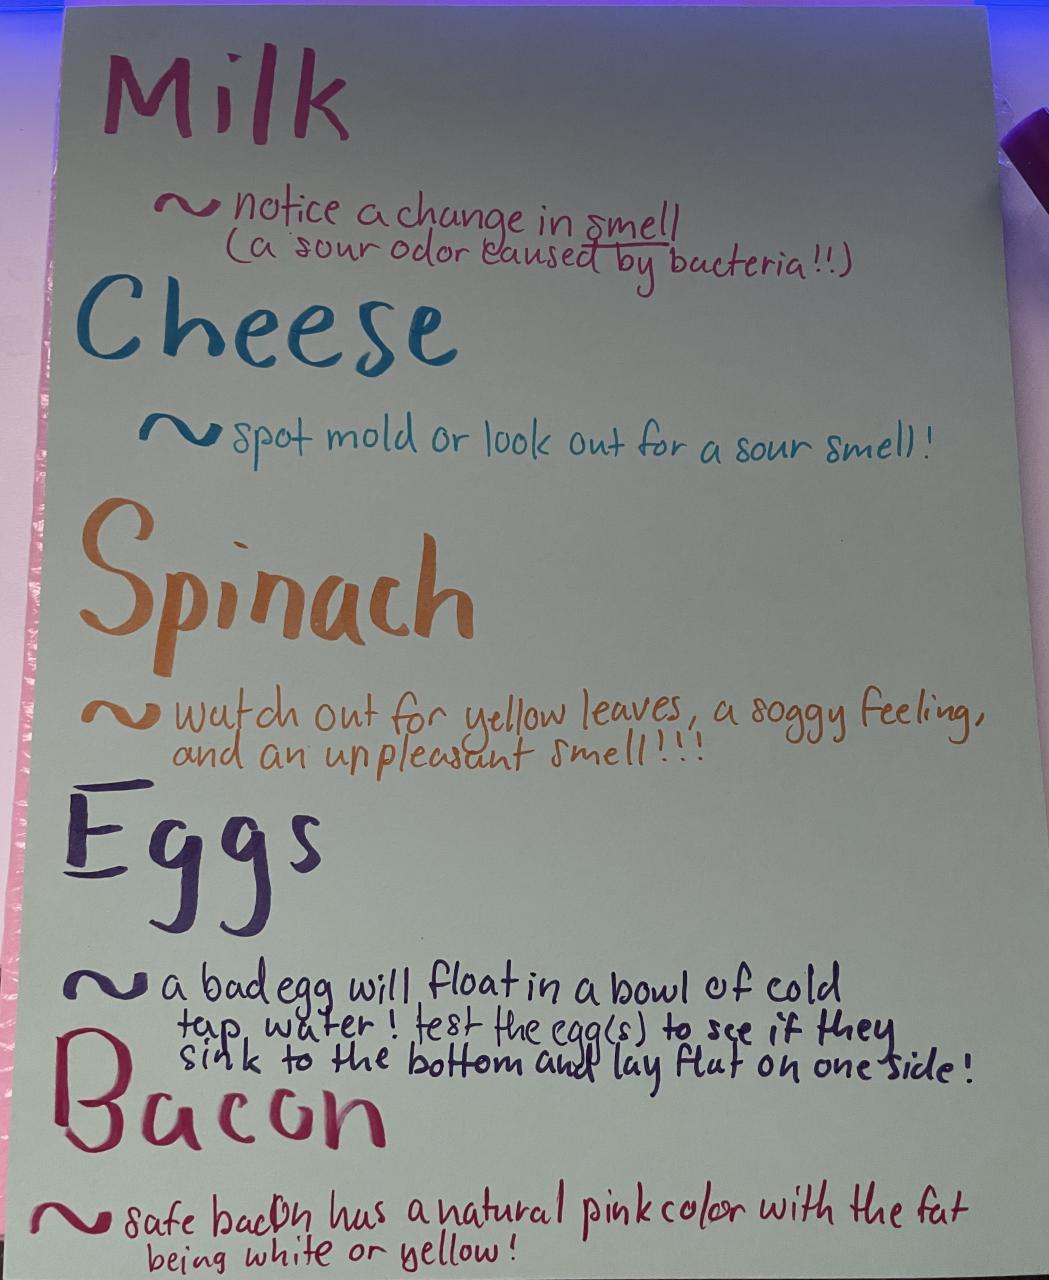 Milk
~ notice a change in smell
(a sour odor caused by bacteria!!)
Cheese
~ spot mold or look out for a sour smell!
Spinach
~ watch out for yellow leaves, a soggy feeling,
and an unpleasant smell!!!
Eggs
~ a bad egg will float in a bowl of cold
tap water! test the egg(s) to see if they
sink to the bottom and lay flat on one side!
Bacon
~ safe bacon has a natural pink color with the fat
being white or yellow!